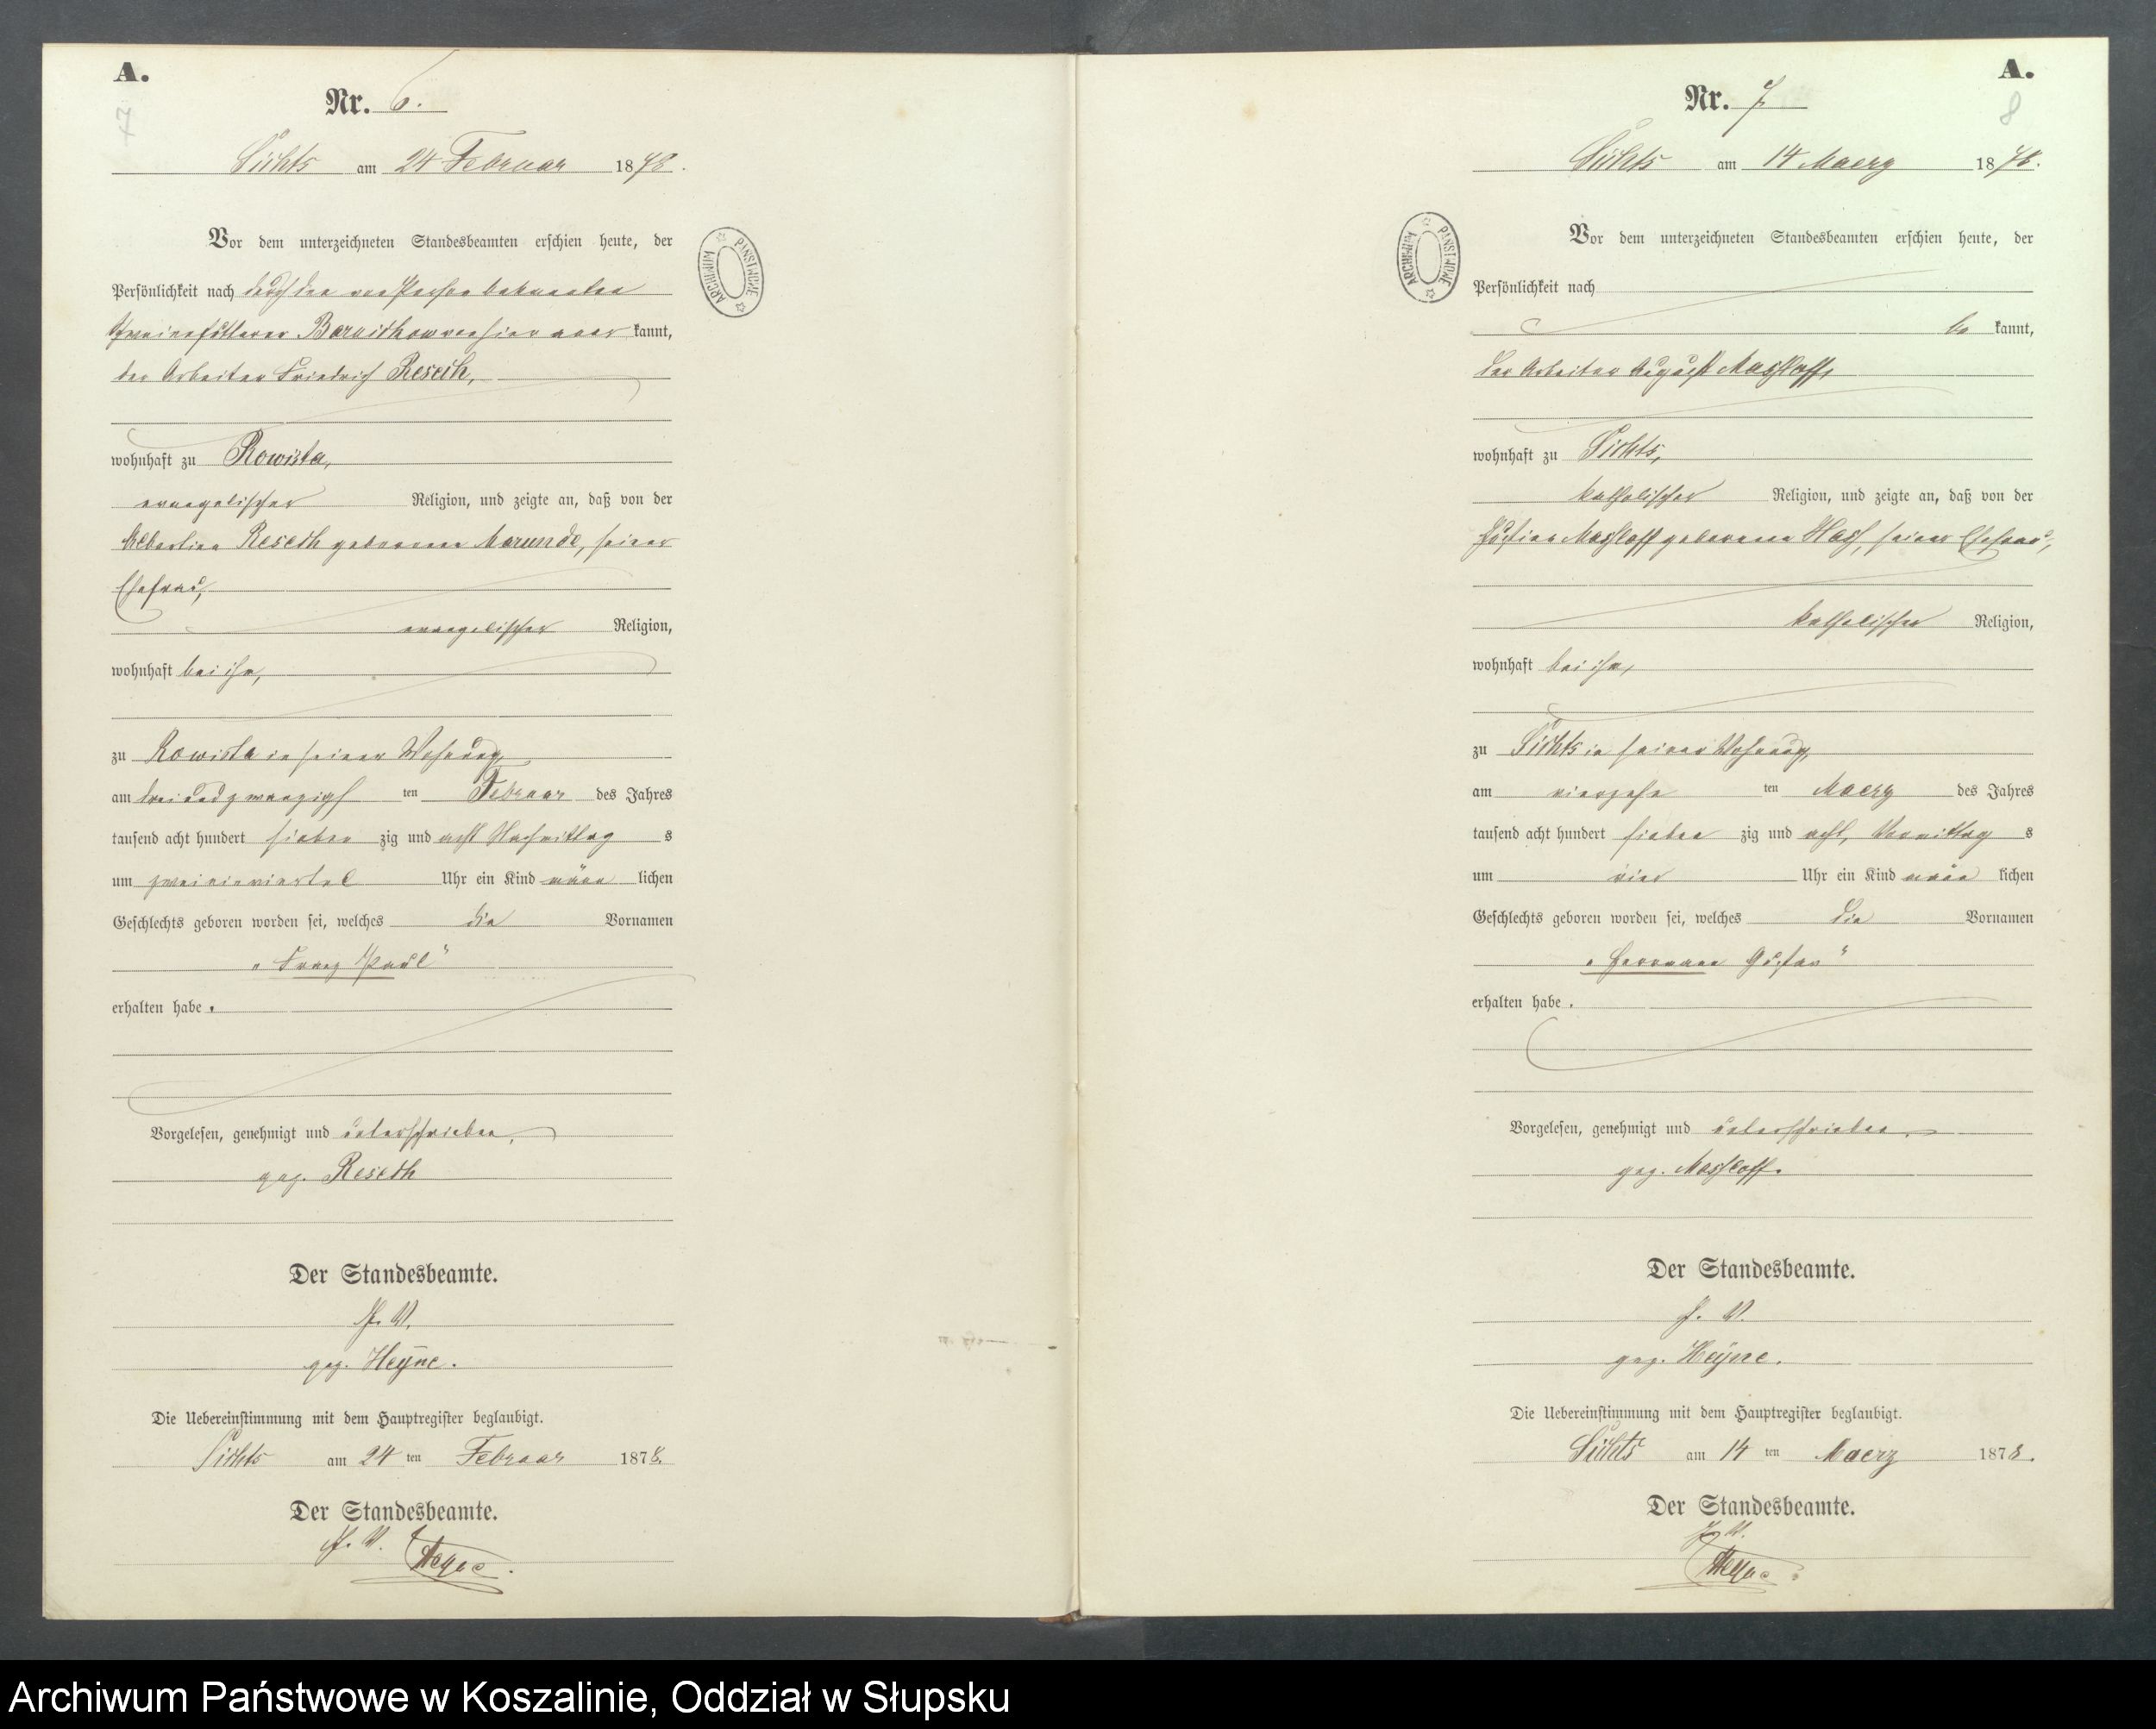 A.
7
Nr. 6.
Sichts am 24 Februar 1878.
Vor dem unterzeichneten Standesbeamten erschien heute, der
Persönlichkeit nach durch den von Person bekannten
Schweinefütterer von hier aner kannt,
der Arbeiter Friedrich Reseth,
wohnhaft zu Rowista,
evangelischer Religion, und zeigte an, daß von der
Albertine Reseth geborenen Marunde, seiner
Ehefrau,
evangelischer Religion,
wohnhaft bei ihm,
zu Rowista in seiner Wohnung,
am drei und zwanzigst ten Februar des Jahres
tausend acht hundert sieben zig und acht Nachmittag s
um zweieinviertel Uhr ein Kind männ lichen
Geschlechts geboren worden sei, welches die Vornamen
„Franz Paul"
erhalten habe.
Vorgelesen, genehmigt und unterschrieben.
gez. Reseth
Der Standesbeamte.
J. V.
gez. Heyne.
Die Uebereinstimmung mit dem Hauptregister beglaubigt.
Sichts am 24 ten Februar 1878.
Der Standesbeamte.
J. V. Heyne.
A.
8
Nr. 7
Sichts am 14 Maerz 1878.
Vor dem unterzeichneten Standesbeamten erschien heute, der
Persönlichkeit nach
be kannt,
der Arbeiter August Massloff,
wohnhaft zu Sichts,
katholischer Religion, und zeigte an, daß von der
Massloff geborenen Hass, seiner Ehefrau,
katholischer Religion,
wohnhaft bei ihm,
zu Sichts in seiner Wohnung,
am vierzehn ten Maerz des Jahres
tausend acht hundert sieben zig und acht, Vormittag s
um vier Uhr ein Kind männ lichen
Geschlechts geboren worden sei, welches die Vornamen
„Herrmann Gustav"
erhalten habe.
Vorgelesen, genehmigt und unterschrieben.
gez. Massloff.
Der Standesbeamte.
J. V.
gez. Heyne.
Die Uebereinstimmung mit dem Hauptregister beglaubigt.
Sichts am 14 ten Maerz 1878.
Der Standesbeamte.
J. V.
Heyne.
ARCHIWUM PAŃSTWOWE
ARCHIWUM PAŃSTWOWE
Archiwum Państwowe w Koszalinie, Oddział w Słupsku